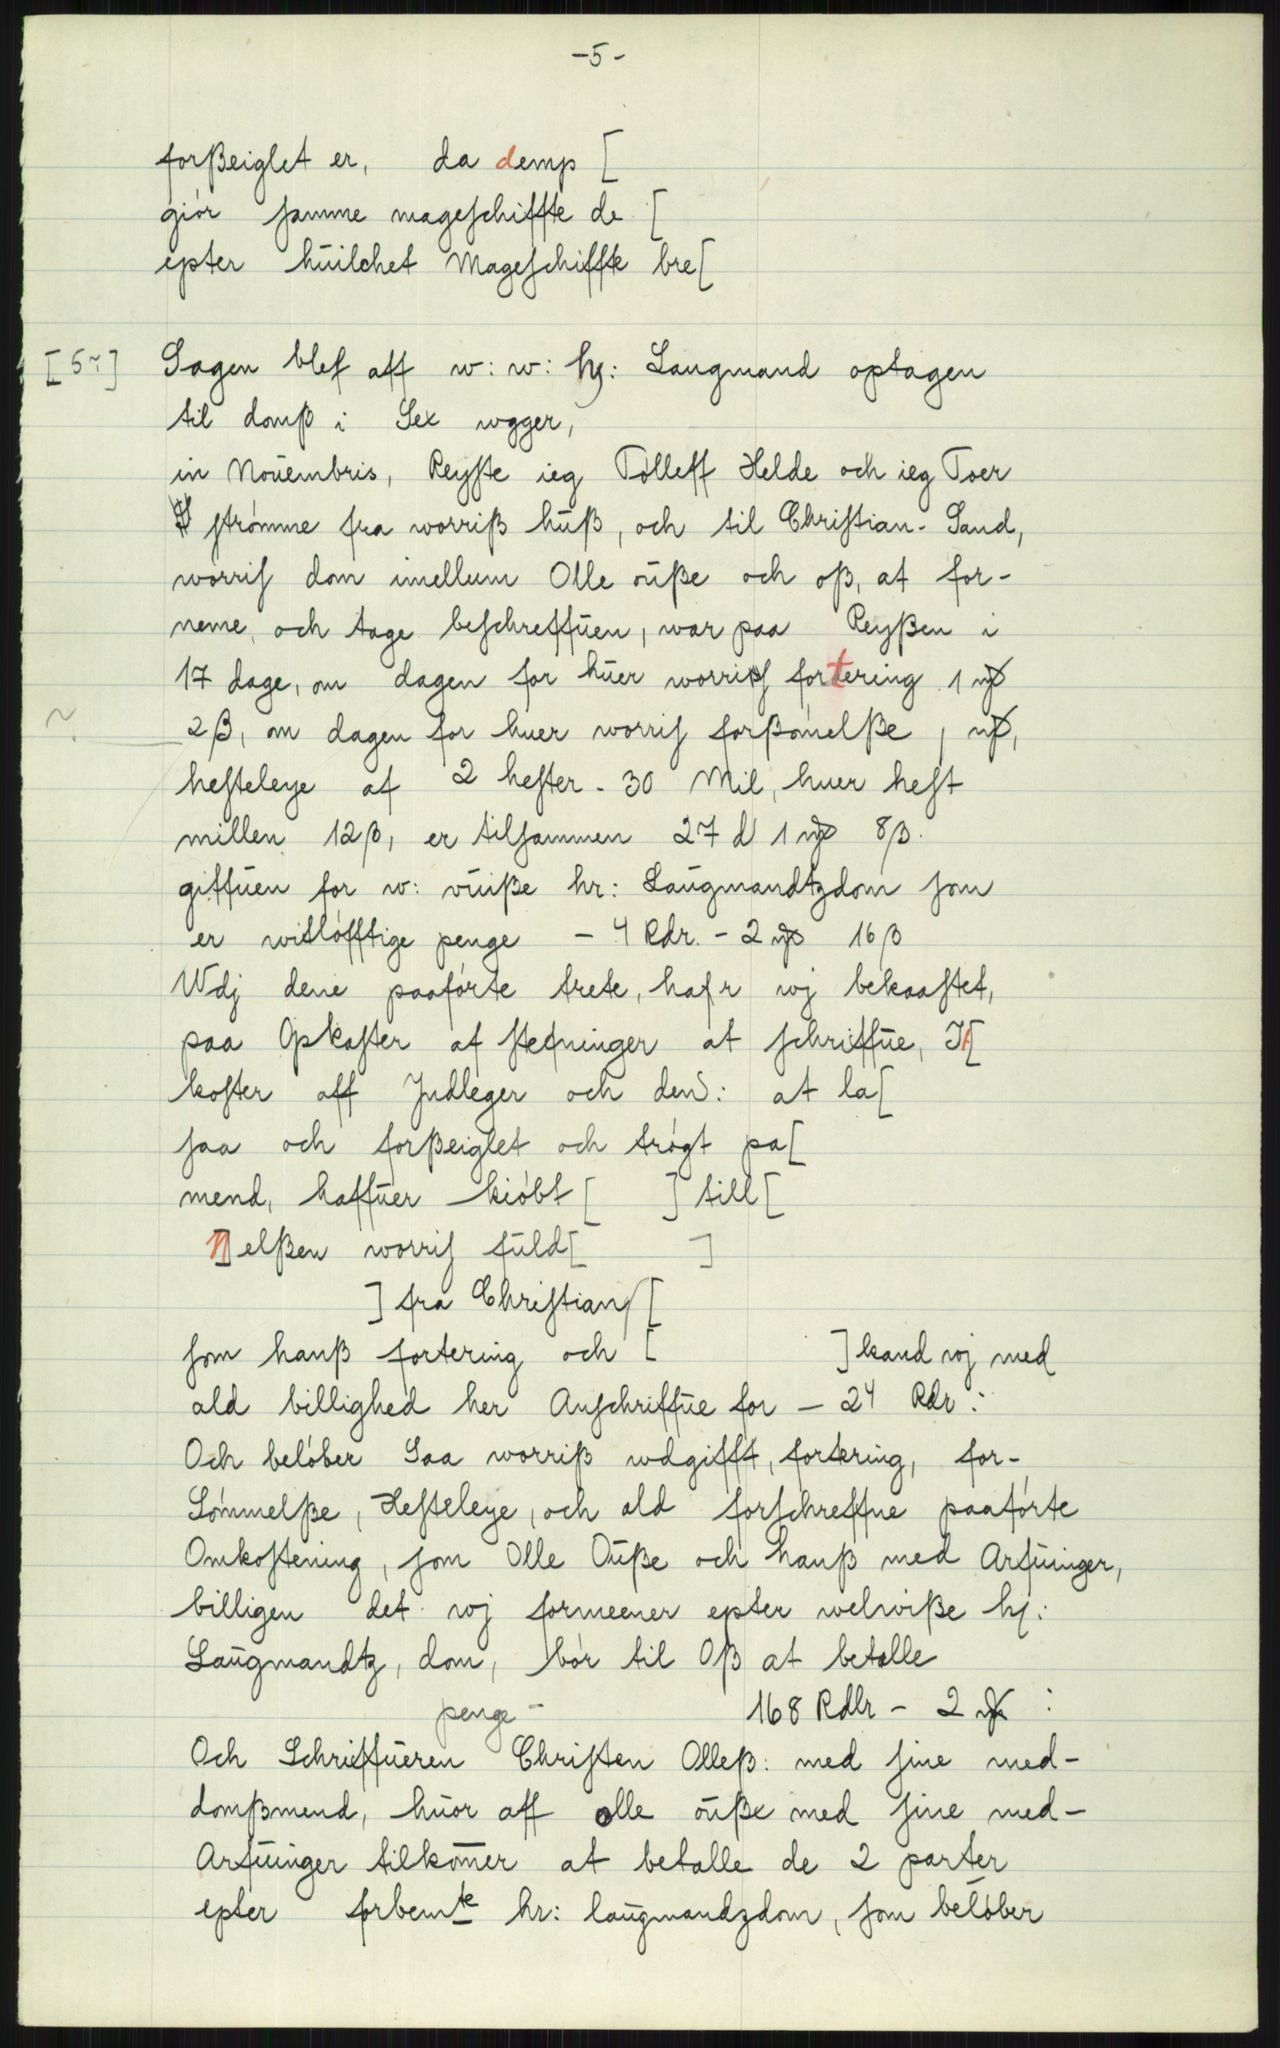 -5-
forßeiglet er, da demp [
giór samme mageschiffte de [
epter huilchet Mageschiffte bre[
[5r] Sagen blef aff w: w: hr: Laugmand optagen
til domß i Sex wgger,
in Nouembris, Reyste ieg Tolleff Helde och ieg Toer
strómme fra worriß huß, och til Christian-Sand,
worris dom imellum Olle ouße och oß, at for-
neme, och tage beschreffuen, war paa Reyßen i
17 dage, om dagen for huer worris fortering 1 mꝶ
2 β, om dagen for huer worris forßómelße 1 mꝶ,
hesteleye af 2 hester - 30 Mil, huer hest
millen 12 β, er tilsammen 27 d 1 mꝶ 8 β.
giffuen for w: vuiße hr: Laugmandtzdom som
er witlófftige penge - 4 Rdr. - 2 mꝶ 16 β
Wdj dene paafórte trete, hafr wj bekaastet,
paa Opkaster af stefninger at schriffue, It[
koster aff Indleger och den: at la[
saa och forßeiglet och trógt pa[
mend, haffuer kióbt [ ] till [
n]elßen worris fuld[ ]
] fra Christians[
som hanß fortering och [ ] kand wj med
ald billighed her Anschriffue for - 24 Rdr:
Och belóber Saa worriß wdgifft, fortering, for-
Sómmelße, Hesteleye, och ald forschreffne paafórte
Omkostening, som Olle Ouße och hanß med Arfuinger,
billigen det wj formeener epter welwiße hr:
Laugmandtz, dom, bór til Oß at betalle
penge - 168 Rdlr - 2 mꝶ :
Och Schriffueren Christen Olleß: med sine med-
domßmend, huor aff olle ouße med sine med-
Arfuinger tilkom̅er at betalle de 2 parter
epter forbemte hr: laugmandzdom, som belóber